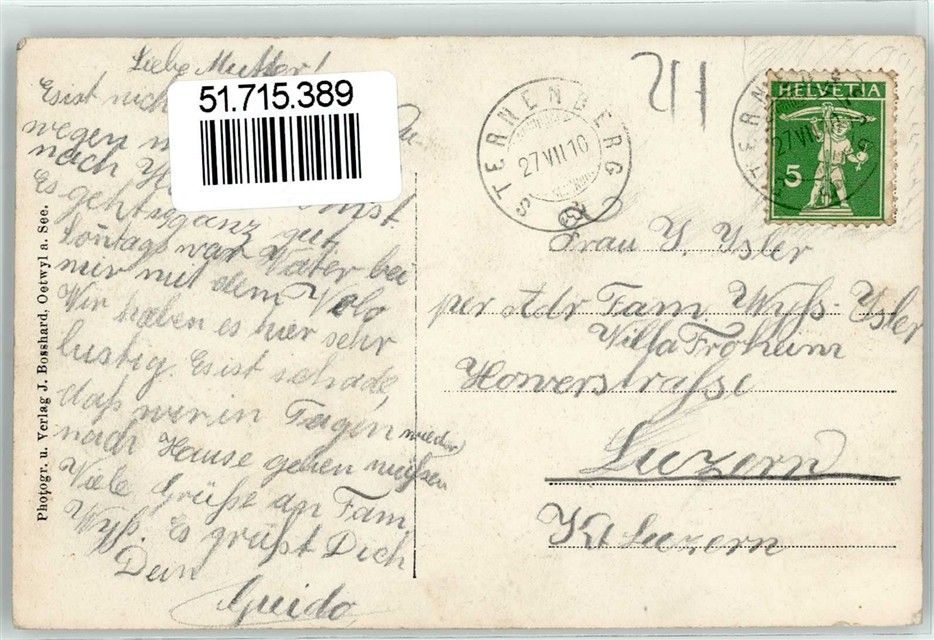 Liebe Mutter!
Es ist nich
wegen
nach
Es geht ganz gut
Sontags war Vater bei
mir mit dem Velo
Wir haben es hier sehr
lustig. Es ist schade,
daß wir in Tagen wieder
nach Hause gehen müssen
Viele Grüße an Fam.
Wyß. Es grüßt Dich
Dein
Guido
51.715.389
Photogr. u. Verlag J. Bosshard, Oetwyl a. See.
STERNENBERG
27 VII 10
HELVETIA
5
STERNENBERG
27 VII 10
Frau Y. Ysler
per Adr Fam. Wyß-Ysler
Villa Froheim
Howerstraße
Luzern
Kt Luzern